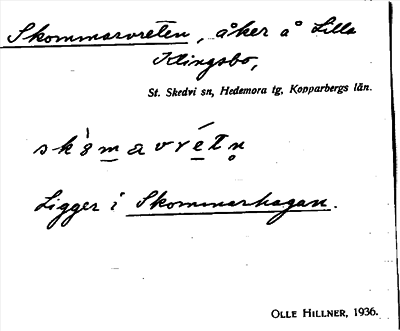 Skommarvreten, åker å Lilla
Klingsbo,
St. Skedvi sn, Hedemora tg, Kopparbergs län.
Ligger i Skommarhagan.
OLLE HILLNER, 1936.